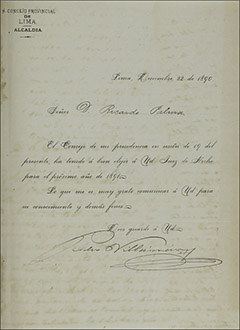 H. CONCEJO PROVINCIAL
DE
LIMA
ALCALDIA
Lima, Noviembre 22 de 1890
Señor D. Ricardo Palma
El Concejo de mi presidencia en sesión de 19 del
presente, ha tenido á bien elejir á Ud Juez de Hecho
para el próximo año de 1891.
Lo que me es muy grato comunicar á Ud para
su conocimiento y demás fines.
Dios guarde á Ud.